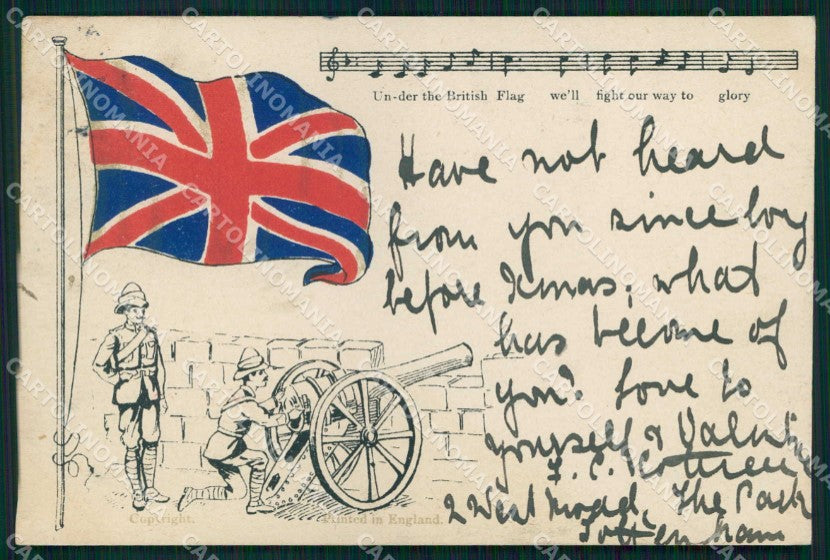 Un-der the British Flag we'll fight our way to glory
Have not heard
from you since long
before Xmas, what
has become of
you? Love to
yourself & Valentine
F. C.
2 West Road, The Park
Tottenham
Copyright. Printed in England.
CARTOLINOMANIA